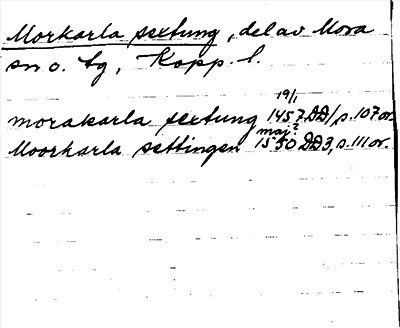 Morkarla sextung, del av Mora
sn o. tg, Kopp. l.
19/1
morakarla sextung 1457 DD1, s. 107 or.
maj?
Moorkarla settingen 1550 DD3, s. 111 or.